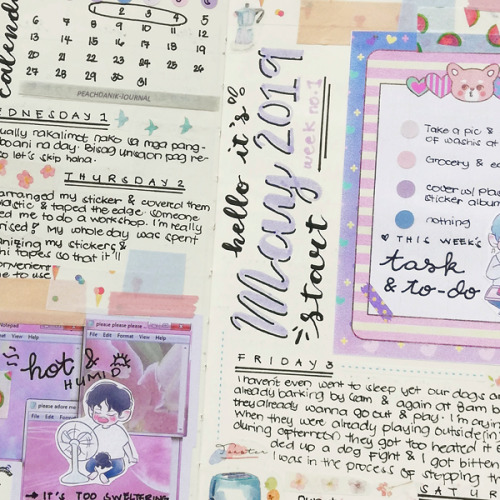 calend
1 2 3 4 5
13 14 15 16 17 18 19
20 21 22 23 24 25 26
27 28 29 30 31
PEACHDANIK-JOURNAL
EDNESDAY 1
ually nakalimot nako sa mga pang-
boani na day. Bisag unsaon pag re-
so let's skip haha.
THURSDAY 2
arranged my sticker & covered them
lastic & taped the edge. someone
ed me to do a workshop. I'm really
rised! My whole day was spent
anizing my stickers &
hi tapes so that it'll
convenient
me to use
Notepad
View Help
please please please
File Edit Format View Help
hot &
HUMID
please adore me
File Edit Format
→ IT'S TOO SWELTERING
hello it's
May 2019
week no.1
start
Take a pic &
of washis at
Grocery & e
cover w/ plas
sticker album
nothing
THIS WEEK'S
task
& to-do
FRIDAY 3
I haven't even went to sleep yet our dogs are
already barking by 6am & again at 8am b
they already wanna go out & play. I'm crying
When they were already playing outside in
during afternoon they got too heated it e
ded up a dog fight & I got bitten
I was in the process of stepping th
SATUR